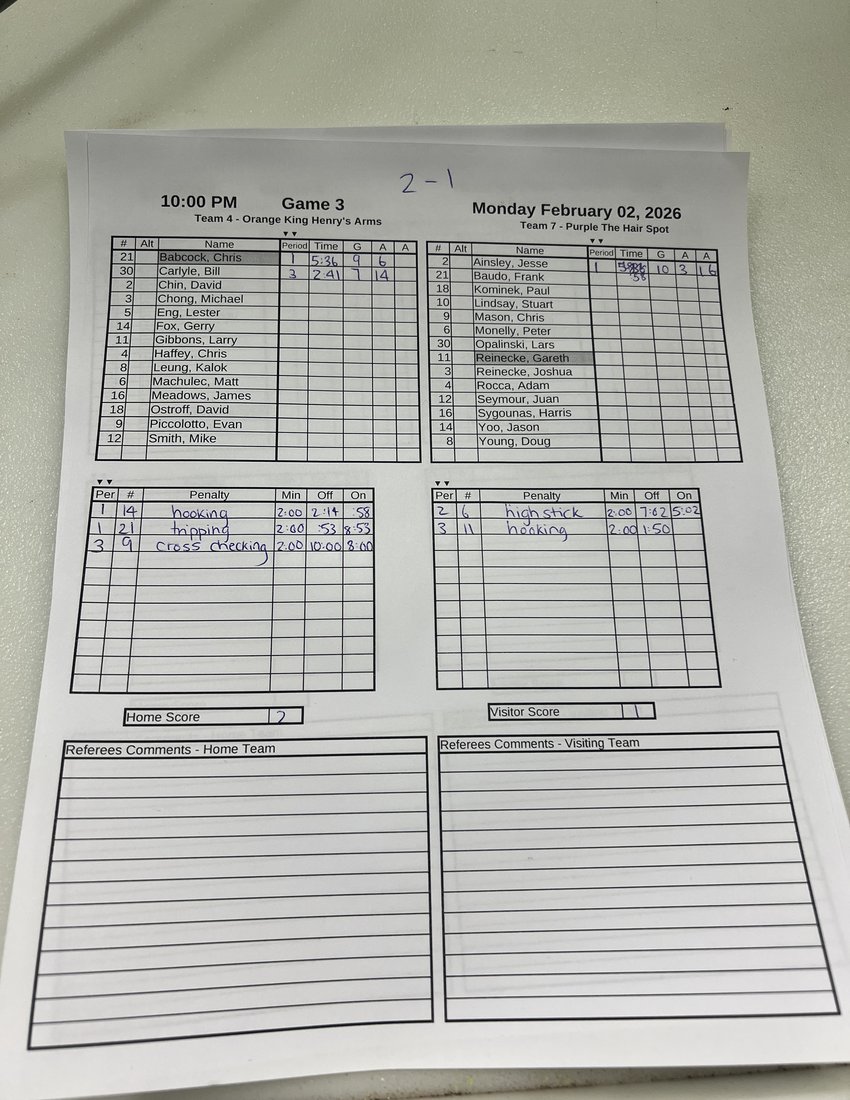 2-1
10:00 PM Game 3 Monday February 02, 2026
Team 4 - Orange King Henry's Arms Team 7 - Purple The Hair Spot
# Alt Name Period Time G A A
21 Babcock, Chris 1 5:36 9 6
30 Carlyle, Bill 3 2:41 7 14
2 Chin, David
3 Chong, Michael
5 Eng, Lester
14 Fox, Gerry
11 Gibbons, Larry
4 Haffey, Chris
8 Leung, Kalok
6 Machulec, Matt
16 Meadows, James
18 Ostroff, David
9 Piccolotto, Evan
12 Smith, Mike
# Alt Name Period Time G A A
2 Ainsley, Jesse 1 10 3 16
21 Baudo, Frank :58
18 Kominek, Paul
10 Lindsay, Stuart
9 Mason, Chris
6 Monelly, Peter
30 Opalinski, Lars
11 Reinecke, Gareth
3 Reinecke, Joshua
4 Rocca, Adam
12 Seymour, Juan
16 Sygounas, Harris
14 Yoo, Jason
8 Young, Doug
Per # Penalty Min Off On
1 14 hooking 2:00 2:14 :58
1 21 tripping 2:00 :53 8:53
3 9 cross checking 2:00 10:00 8:00
Per # Penalty Min Off On
2 6 high stick 2:00 7:02 5:02
3 11 hooking 2:00 1:50
Home Score 2
Visitor Score 1
Referees Comments - Home Team
Referees Comments - Visiting Team